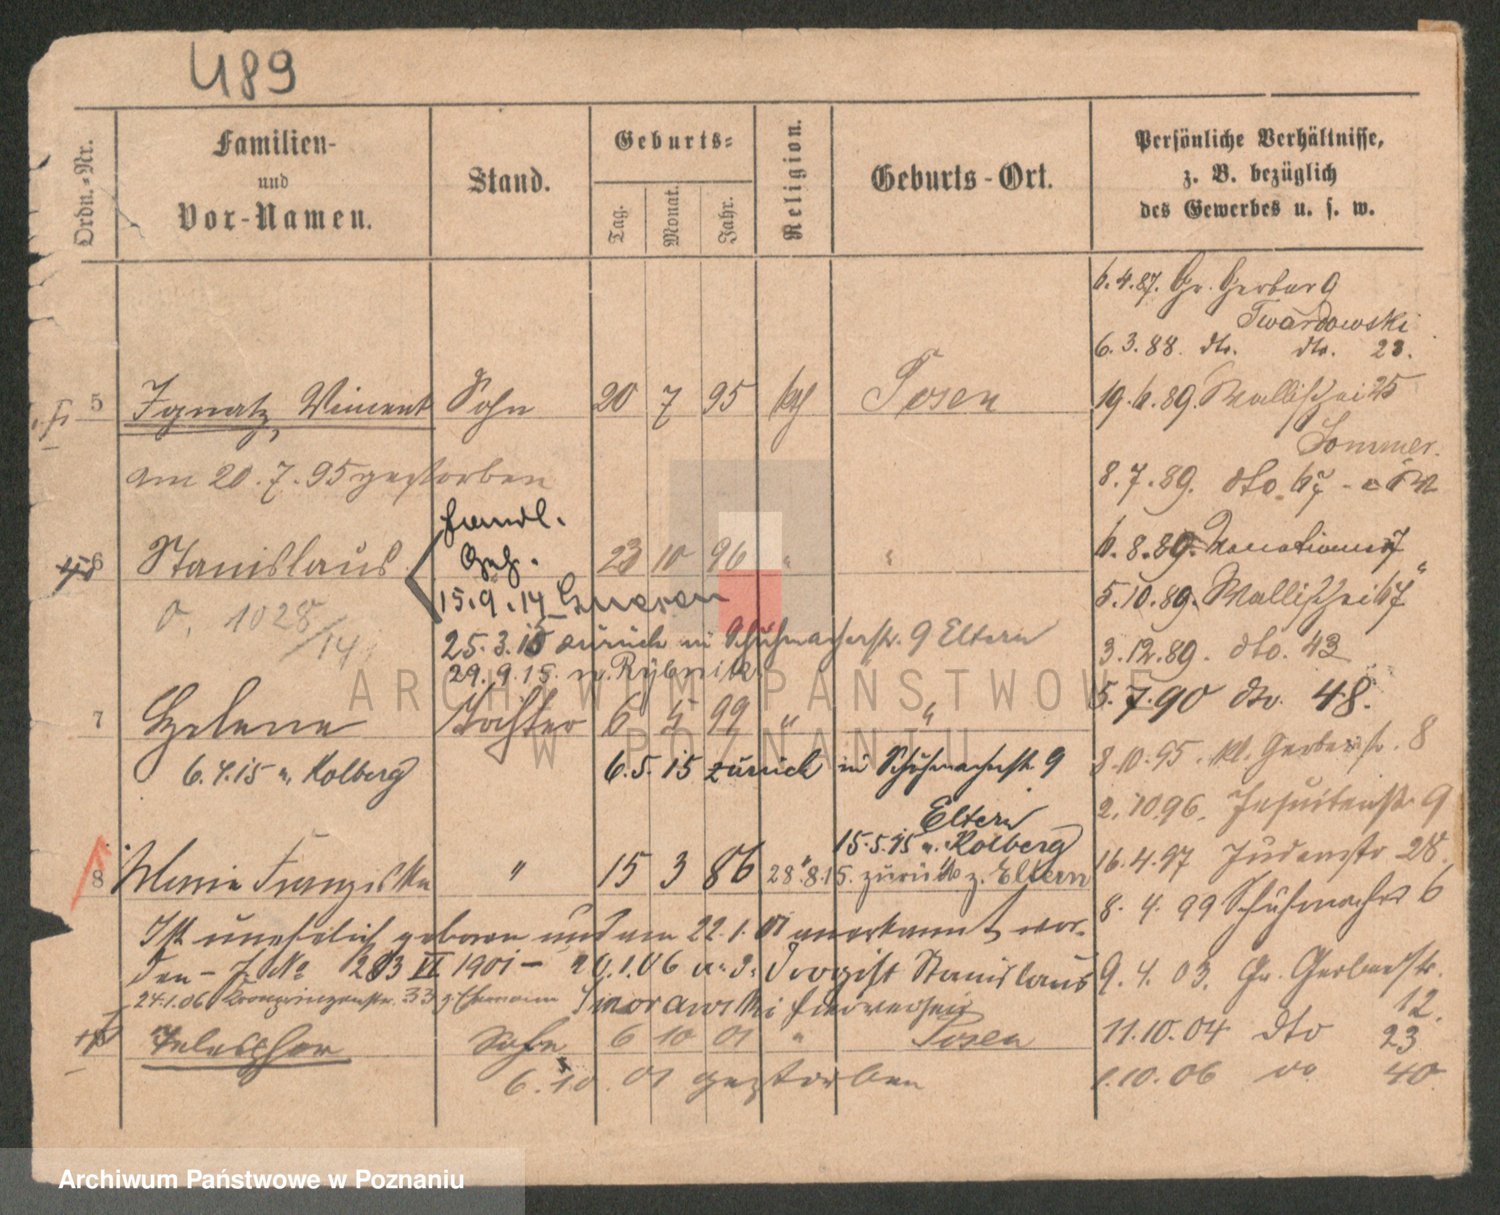 489
Ordn.-Nr.
Familien-
und
Vor-Namen.
Stand.
Geburts-
Tag.
Monat.
Jahr.
Religion.
Geburts-Ort.
Persönliche Verhältnisse,
z. B. bezüglich
des Gewerbes u. s. w.
6.4.87. Gr. Gerber 9
Twardowski
6.3.88. dto. dto. 23.
5 Ignatz, Vincent Sohn 20 7 95 kath Posen
19.6.89. Wallischei 25
am 20.7.95 gestorben
Sommer.
8.7.89. dto. 67
6 Stanislaus Handl.
Geh. 23 10 96 " "
6.8.89.
15.9.14 Gnesen
5.10.89. Wallischei 67
1028/14
25.3.15 zurück in Schuhmacherstr. 9 Eltern
3.12.89. dto. 43
29.9.15. n. Rybnik
5.7.90 dto. 48.
7 Helene Tochter 6 5 99 " "
6.4.15 n. Kolberg 6.5.15 zurück in Schuhmacherstr 9
8.10.95. kl. Gerberstr. 8
Eltern
2.10.96. Jesuitenstr. 9
15.5.15 n. Kolberg
8 Maria Franziska " 15 3 86 28.8.15. zurück z. Eltern
16.4.97 Judenstr 28.
8.4.99 Schuhmacher 6
Ist unehelich geboren und am 22.1.01 anerkannt wor-
den - J. No 203 VI 1901 - 20.1.06 a. d. Drogist Stanislaus
9.4.03. Gr. Gerberstr.
12.
24.1.06 Kronprinzenstr. 33 z. Ehemann
Telesphor Sohn 6 10 01 " Posen
11.10.04 dto 23
6.10.01 gestorben
1.10.06 do 40
ARCHIWUM PAŃSTWOWE
W POZNANIU
Archiwum Państwowe w Poznaniu